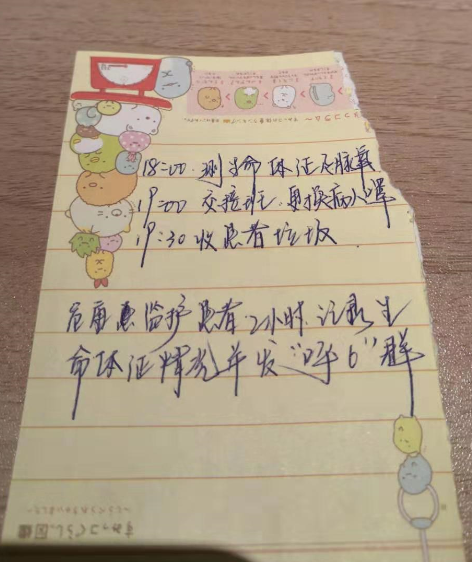 18:00 测生命体征及脉氧
19:00 交接班,更换病人罩
19:30 收患者垃圾
危重患监护患者 2小时 记录生
命体征情况并发“呼6”群